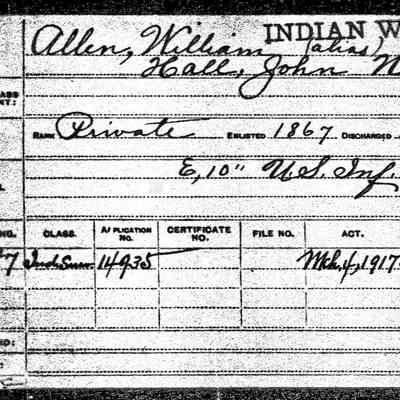 INDIAN W
Allen, William (alias)
Hall, John N
RANK Private ENLISTED 1867 DISCHARGED
E, 10" U.S. Inf.
CLASS. APPLICATION NO. CERTIFICATE NO. FILE NO. ACT.
7 Ind. Surv. 14935 Mch. 4, 1917